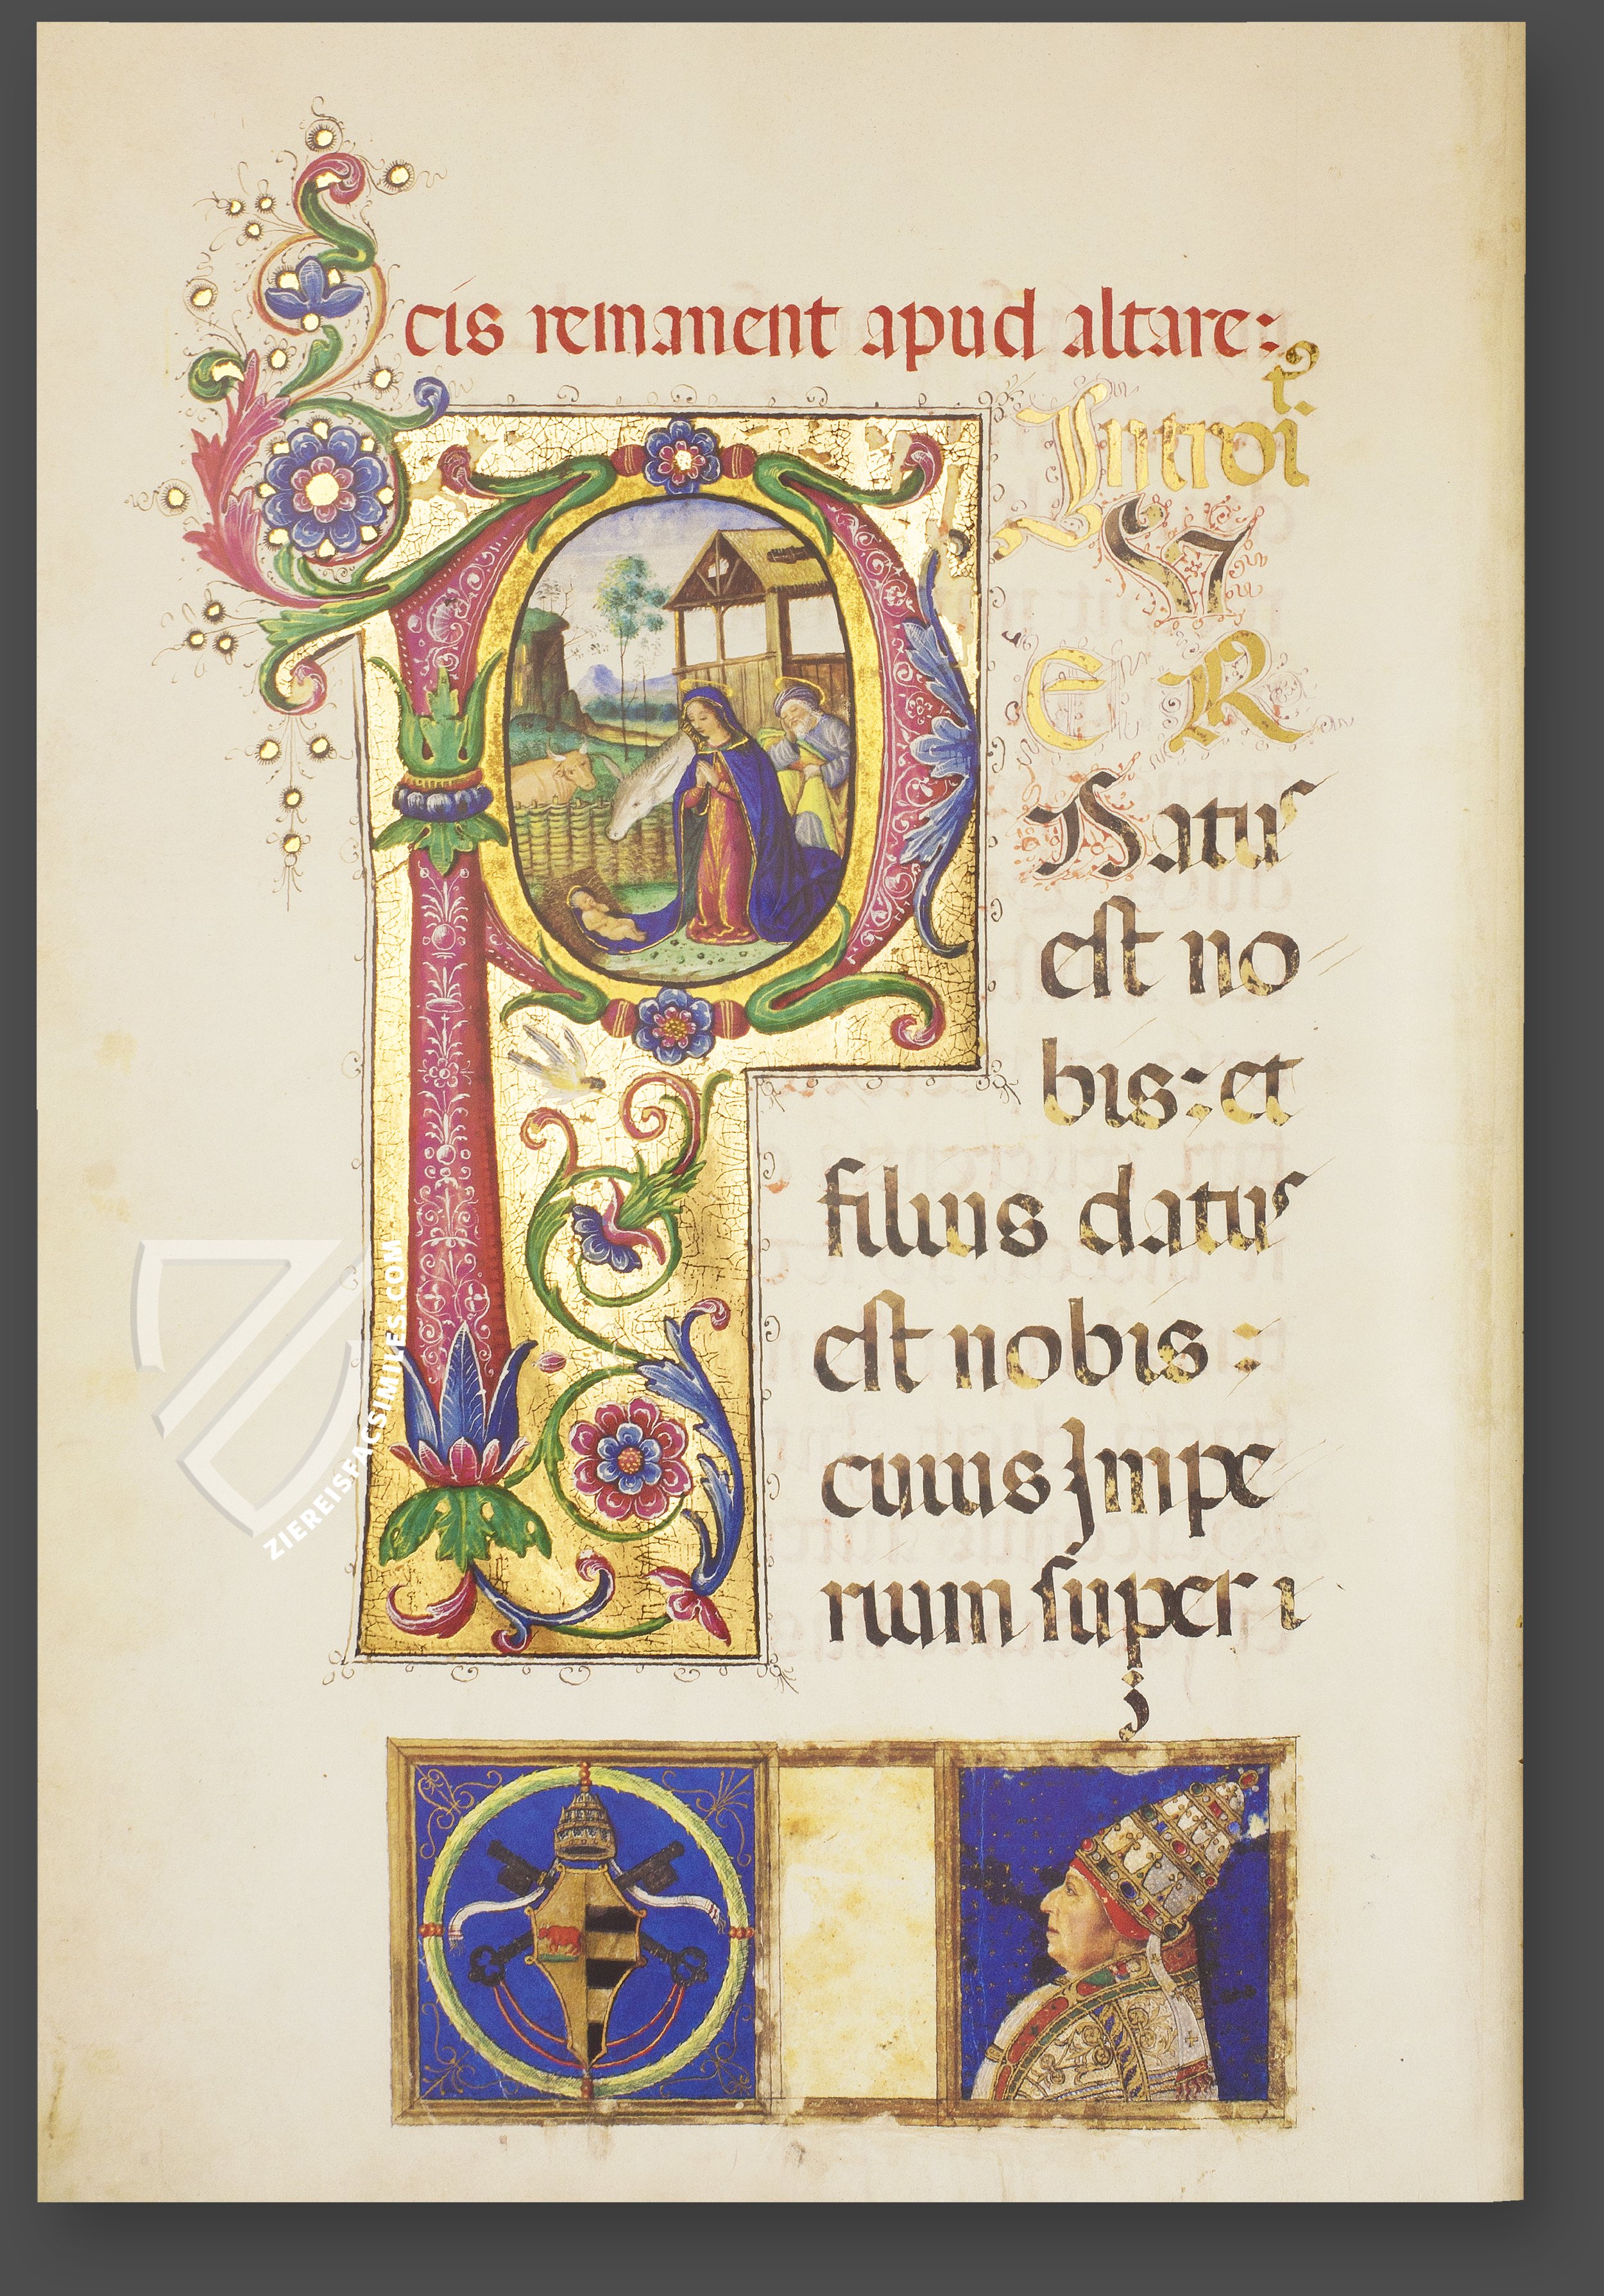 cis remanent apud altare:
Introiᵗ.
PV
ER
Natus
est no
bis: et
filius datus
est nobis:
cuius Impe
rium super i
ZIEREISFACSIMILES.COM